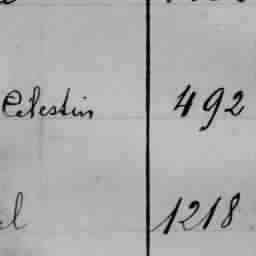 Celestin 492
el 1218